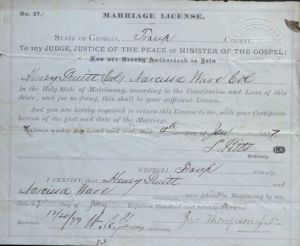 No. 37.
MARRIAGE LICENSE.
STATE OF GEORGIA, Troup COUNTY.
To any JUDGE, JUSTICE OF THE PEACE or MINISTER OF THE GOSPEL:
You are Hereby Authorized to Join
Henry Pruitt Col & Narcissa Ward Col
In the Holy State of Matrimony, according to the Constitution and Laws of this
State; and for so doing, this shall be your sufficient License.
And you are hereby required to return this License to me, with your Certificate
hereon of the fact and date of the Marriage.
Given under my hand and seal, this 4th day of Jany 1877
Ordinary.
GEORGIA, Troup County.
I CERTIFY, that Henry Pruitt and
Narcissa Ward were joined in Matrimony by me,
this day of Eighteen Hundred and seventy
Recorded: